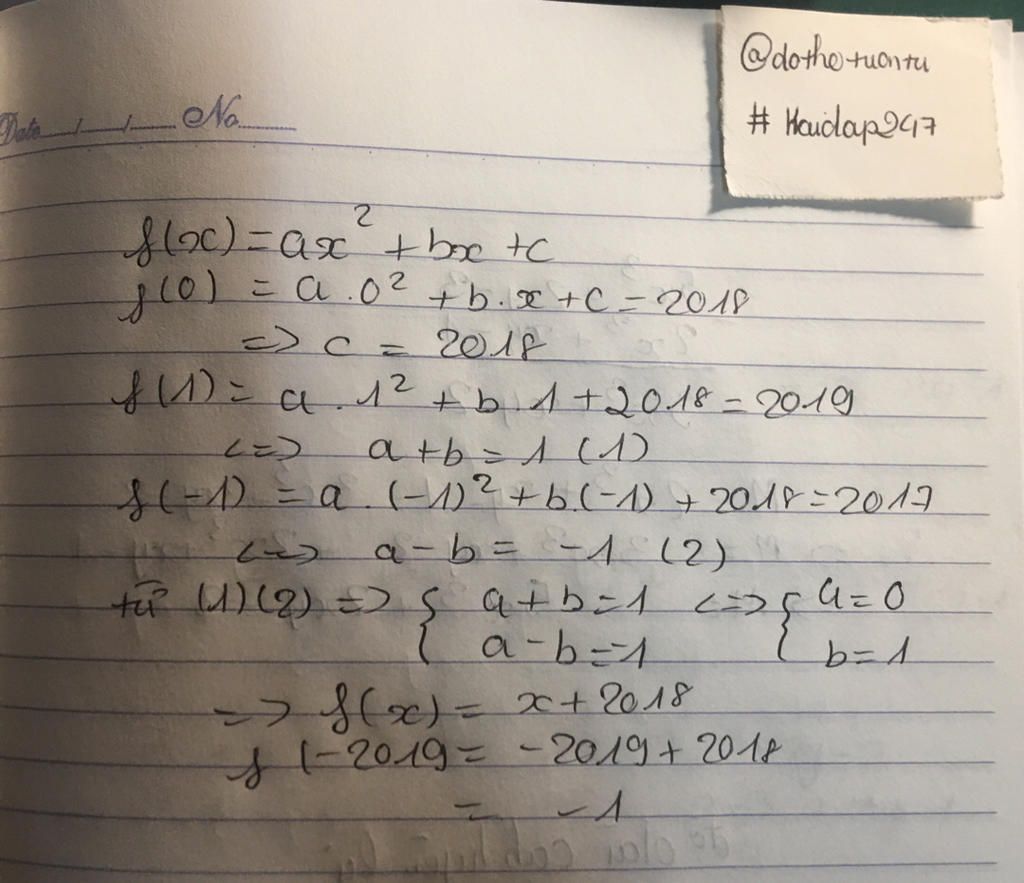 @dothetuantu
# Hoidap247
Date / / No
f(x) = ax² + bx + c
f(0) = a.0² + b.x + c = 2018
=> c = 2018
f(1) = a.1² + b.1 + 2018 = 2019
<=> a + b = 1 (1)
f(-1) = a.(-1)² + b.(-1) + 2018 = 2017
<=> a - b = -1 (2)
từ (1)(2) => { a + b = 1 <=> { a = 0
a - b = -1 b = 1
=> f(x) = x + 2018
f(-2019 = -2019 + 2018
= -1